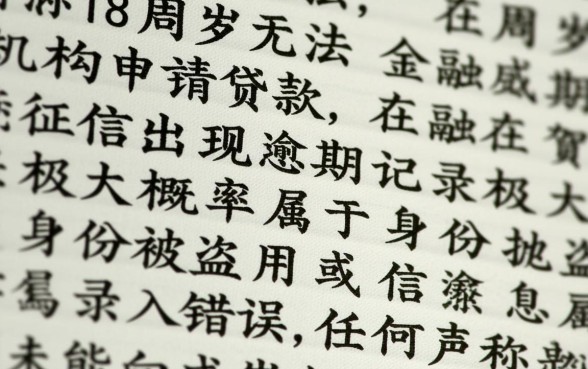 在周岁
18周岁无法 金融威期
机构申请贷款, 在融在賀
征信出现逾期记录极大
极大概率属于身份 盗
身份被盗用或信 息属
录入错误,任何声称
未能